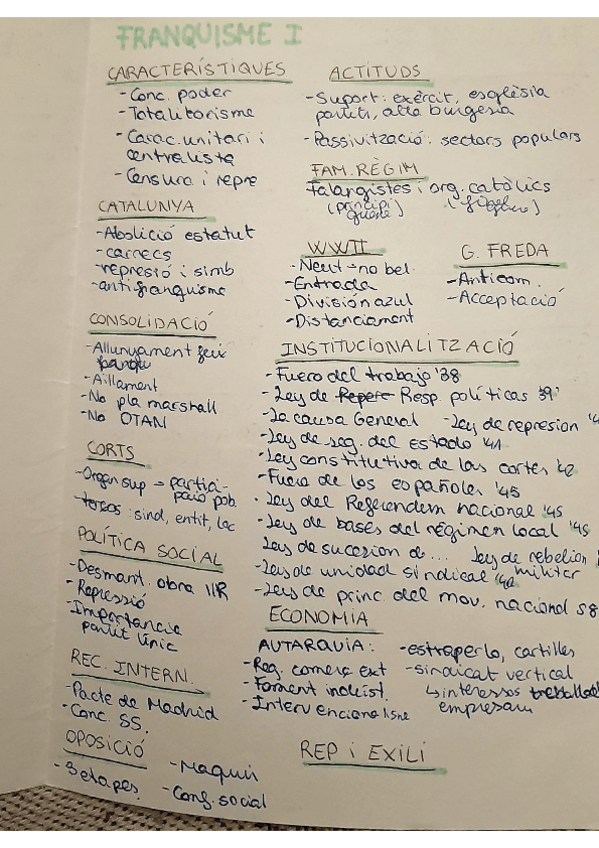 FRANQUISME I
CARACTERÍSTIQUES
- Conc. poder
- Totalitarisme
- Carac. unitari i
centralista
- Censura i repre
CATALUNYA
- Abolició estatut
- carrecs
- repressió i simb
- antifranquisme
CONSOLIDACIÓ
- Allunyament feix
- Aïllament
- No pla marshall
- No OTAN
CORTS
- Organ sup → partici-
pació pob.
- tercos: sind, entit, loc
POLÍTICA SOCIAL
- Desmant. obra IIR
- Repressió
- Importancia
partit únic
REC. INTERN.
- Pacte de Madrid
- Conc. SS.
OPOSICIÓ
- 3 etapes.
- Maquis
- Conf. social
ACTITUDS
- Suport: exèrcit, esglèsia
partit, alta burgesia
- Passivització: sectors populars
FAM. RÈGIM
Falangistes i org. catòlics
WWII
- Neut → no bel.
- Entrada
- División azul
- Distanciament
G. FREDA
- Anticom.
- Acceptació
INSTITUCIONALITZACIÓ
- Fuero del trabajo '38
- Ley de Resp. políticas 39'
- La causa General - Ley de represion
- Ley de seg. del Estado '41
- Ley constitutiva de las cortes '42
- Fuero de los españoles '45
- Ley del Referendem nacional '45
- Ley de bases del régimen local '45
Ley de sucesion de ... Ley de rebelion
militar
- Ley de unidad sindical '40
- Ley de princ. del mov. nacional 58
ECONOMIA
AUTARQUIA:
- Reg. comerç ext
- Foment indúst.
- Intervencionalisme
- estraperlo, cartilles
- sindicat vertical
↳ interessos
empresam
REP i EXILI